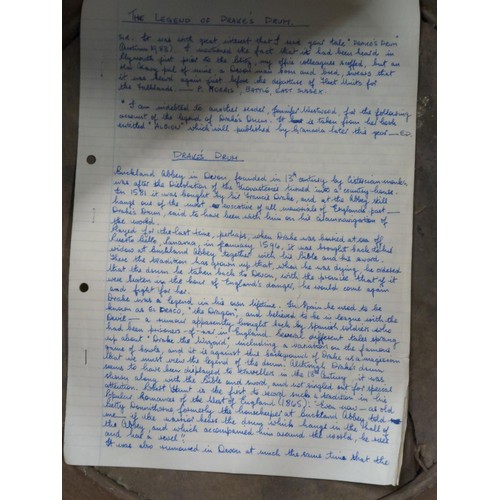 THE LEGEND OF DRAKE'S DRUM
It was with great interest that I read your tale "DRAKE'S DRUM
I mentioned the fact that it had been heard in
Plymouth just prior to the my office colleagues scoffed, but an
old Navy pal of mine, a Devon man born and bred, swears that
it was heard again just before the departure of Fleet Units for
the Falklands. — P. MORRIS, BATTLE, EAST SUSSEX.
"I am indebted to another reader, Jennifer Westwood for the following
account of the legend of Drake's Drum. It is taken from her book
entitled "ALBION" which will published by Granada later this year — ED.
DRAKE'S DRUM
Buckland Abbey in Devon founded in 13th century by Cistercian monks
was after the Dissolution of the Monasteries turned into a country-house.
In 1581 it was bought by Sir Francis Drake, and at the Abbey still
hangs one of the most evocative of all memorials of England's past —
Drake's Drum, said to have been with him on his circumnavigation of
the world.
Played for the last time, perhaps, when Drake was buried at sea off
Puerto Bello, Panama, in January 1596, it was brought back to his
widow at Buckland Abbey together with his bible and his sword.
There the tradition was grown up that, when he was dying, he ordered
that the drum be taken back to Devon, with the promise that if it
were beaten in the hour of England's danger, he would come again
and fight for her.
Drake was a legend in his own lifetime. In Spain he used to be
known as EL DRACO, "the Dragon", and believed to be in league with the
Devil — a rumour apparently brought back by Spanish soldiers who
had been prisoners of war in England. Several different tales sprang
up about "Drake the Wizard" including a variation on the famous
game of bowls, and it is against this background of Drake as a magician
that we must view the legend of the drum. Although Drake's drum
seems to have been displayed to travellers in the 18th century it was
shown along with the bible and sword, and not singled out for special
attention. Robert Hunt is the first to record such a tradition in his
Popular Romances of the West of England (1865). "Even now — as old
Betty Donovan formerly the housekeeper at Buckland Abbey told
me — if the warrior hears the drum which hangs in the hall of
the Abbey, and which accompanied him around the world, he rises
and has a revel".
It was also rumoured in Devon at much the same time that the